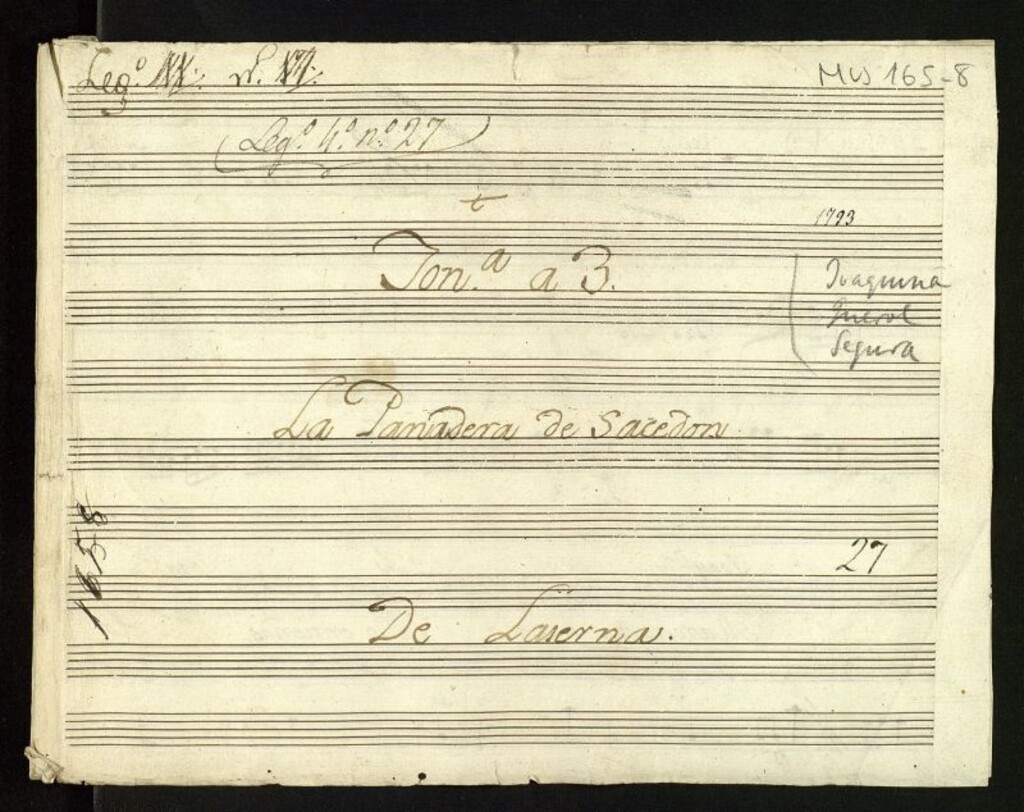 Leg.º
Mus 165-8
(Leg.º 4.º n.º 27)
t
1793
Ton.ª a 3.
Joaquina
Querol
Segura
La Panadera de Sacedon
165-8
27
De Laserna.